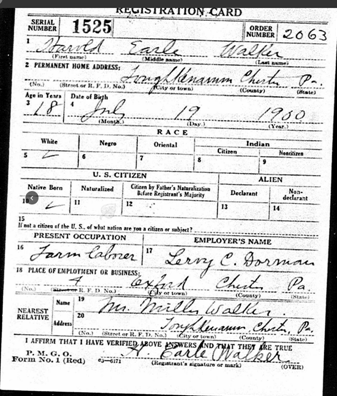 REGISTRATION CARD
SERIAL NUMBER 1525 ORDER NUMBER 2063
Harold Earle Walker
(First name) (Middle name) (Last name)
2 PERMANENT HOME ADDRESS:
Toughkenamon Chester Pa
(No.) (Street or R. F. D. No.) (City or town) (County) (State)
Age in Years Date of Birth
3 18 4 July 19 1900
(Month.) (Day.) (Year.)
RACE
White Negro Oriental Indian
Citizen Noncitizen
5 ✓ 6 7 8 9
U. S. CITIZEN ALIEN
Native Born Naturalized Citizen by Father's Naturalization Before Registrant's Majority Declarant Non-declarant
10 ✓ 11 12 13 14
15
If not a citizen of the U. S., of what nation are you a citizen or subject?
PRESENT OCCUPATION EMPLOYER'S NAME
16 Farm laborer 17 Leroy C. Dorman
18 PLACE OF EMPLOYMENT OR BUSINESS:
Oxford Chester Pa
(No.) (Street or R. F. D. No.) (City or town) (County) (State)
NEAREST RELATIVE Name 19 Walker
Address 20 Toughkenamon Chester, Pa.
(No.) (Street or R. F. D. No.) (City or town) (County) (State)
I AFFIRM THAT I HAVE VERIFIED ABOVE ANSWERS AND THAT THEY ARE TRUE
P. M. G. O.
Form No. 1 (Red) H. Earle Walker
(Registrant's signature or mark) (OVER)